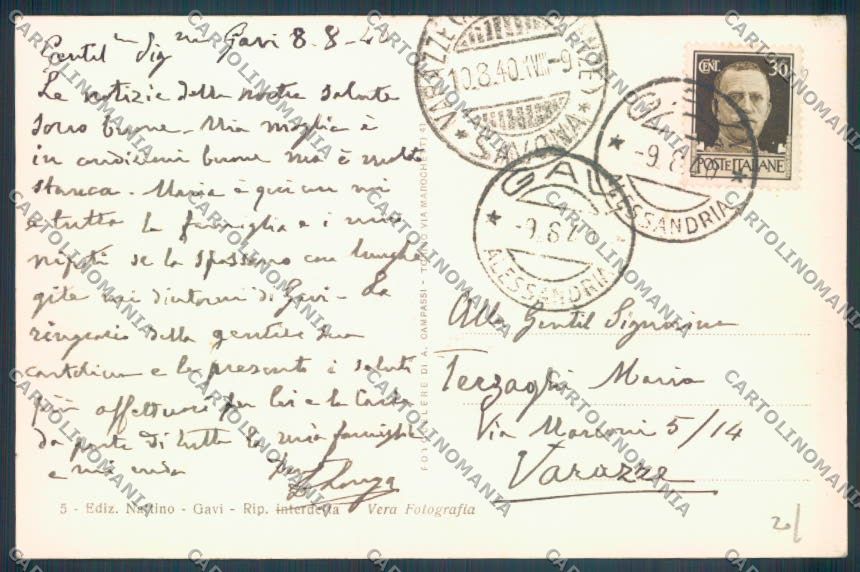 Gentil Sig.na Gavi 8-8-40
Le notizie della nostra salute
sono buone. Mia moglie è
in condizioni buone ma è molto
stanca. Maria è qui con noi
e tutta la famiglia e i miei
nipoti se la spassano con lunghe
gite nei dintorni di Gavi. La
ringrazio della gentile sua
cartolina e le presento i saluti
più affettuosi per Lei e la
da parte di tutta la mia famiglia
e mia
5 - Ediz. Nattino - Gavi - Rip. interdetta Vera Fotografia
FOTOCELERE DI A. CAMPASSI - TORINO VIA MAROCHETTI 41
VARAZZE
10.8.40.XVIII-9
SAVONA
GAVI
-9.8.
ALESSANDRIA
GAVI
-9.8.
ALESSANDRIA
CENT. 30
POSTE ITALIANE
Alla Gentil Signorina
Terzaghi Maria
Via Marconi 5/14
Varazze
20/
CARTOLINOMANIA